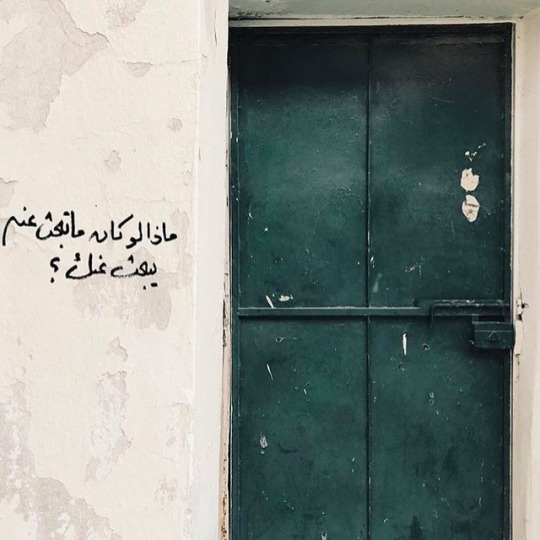 ماذا لو كان ما تبحث عنه
يبحث عنك ؟